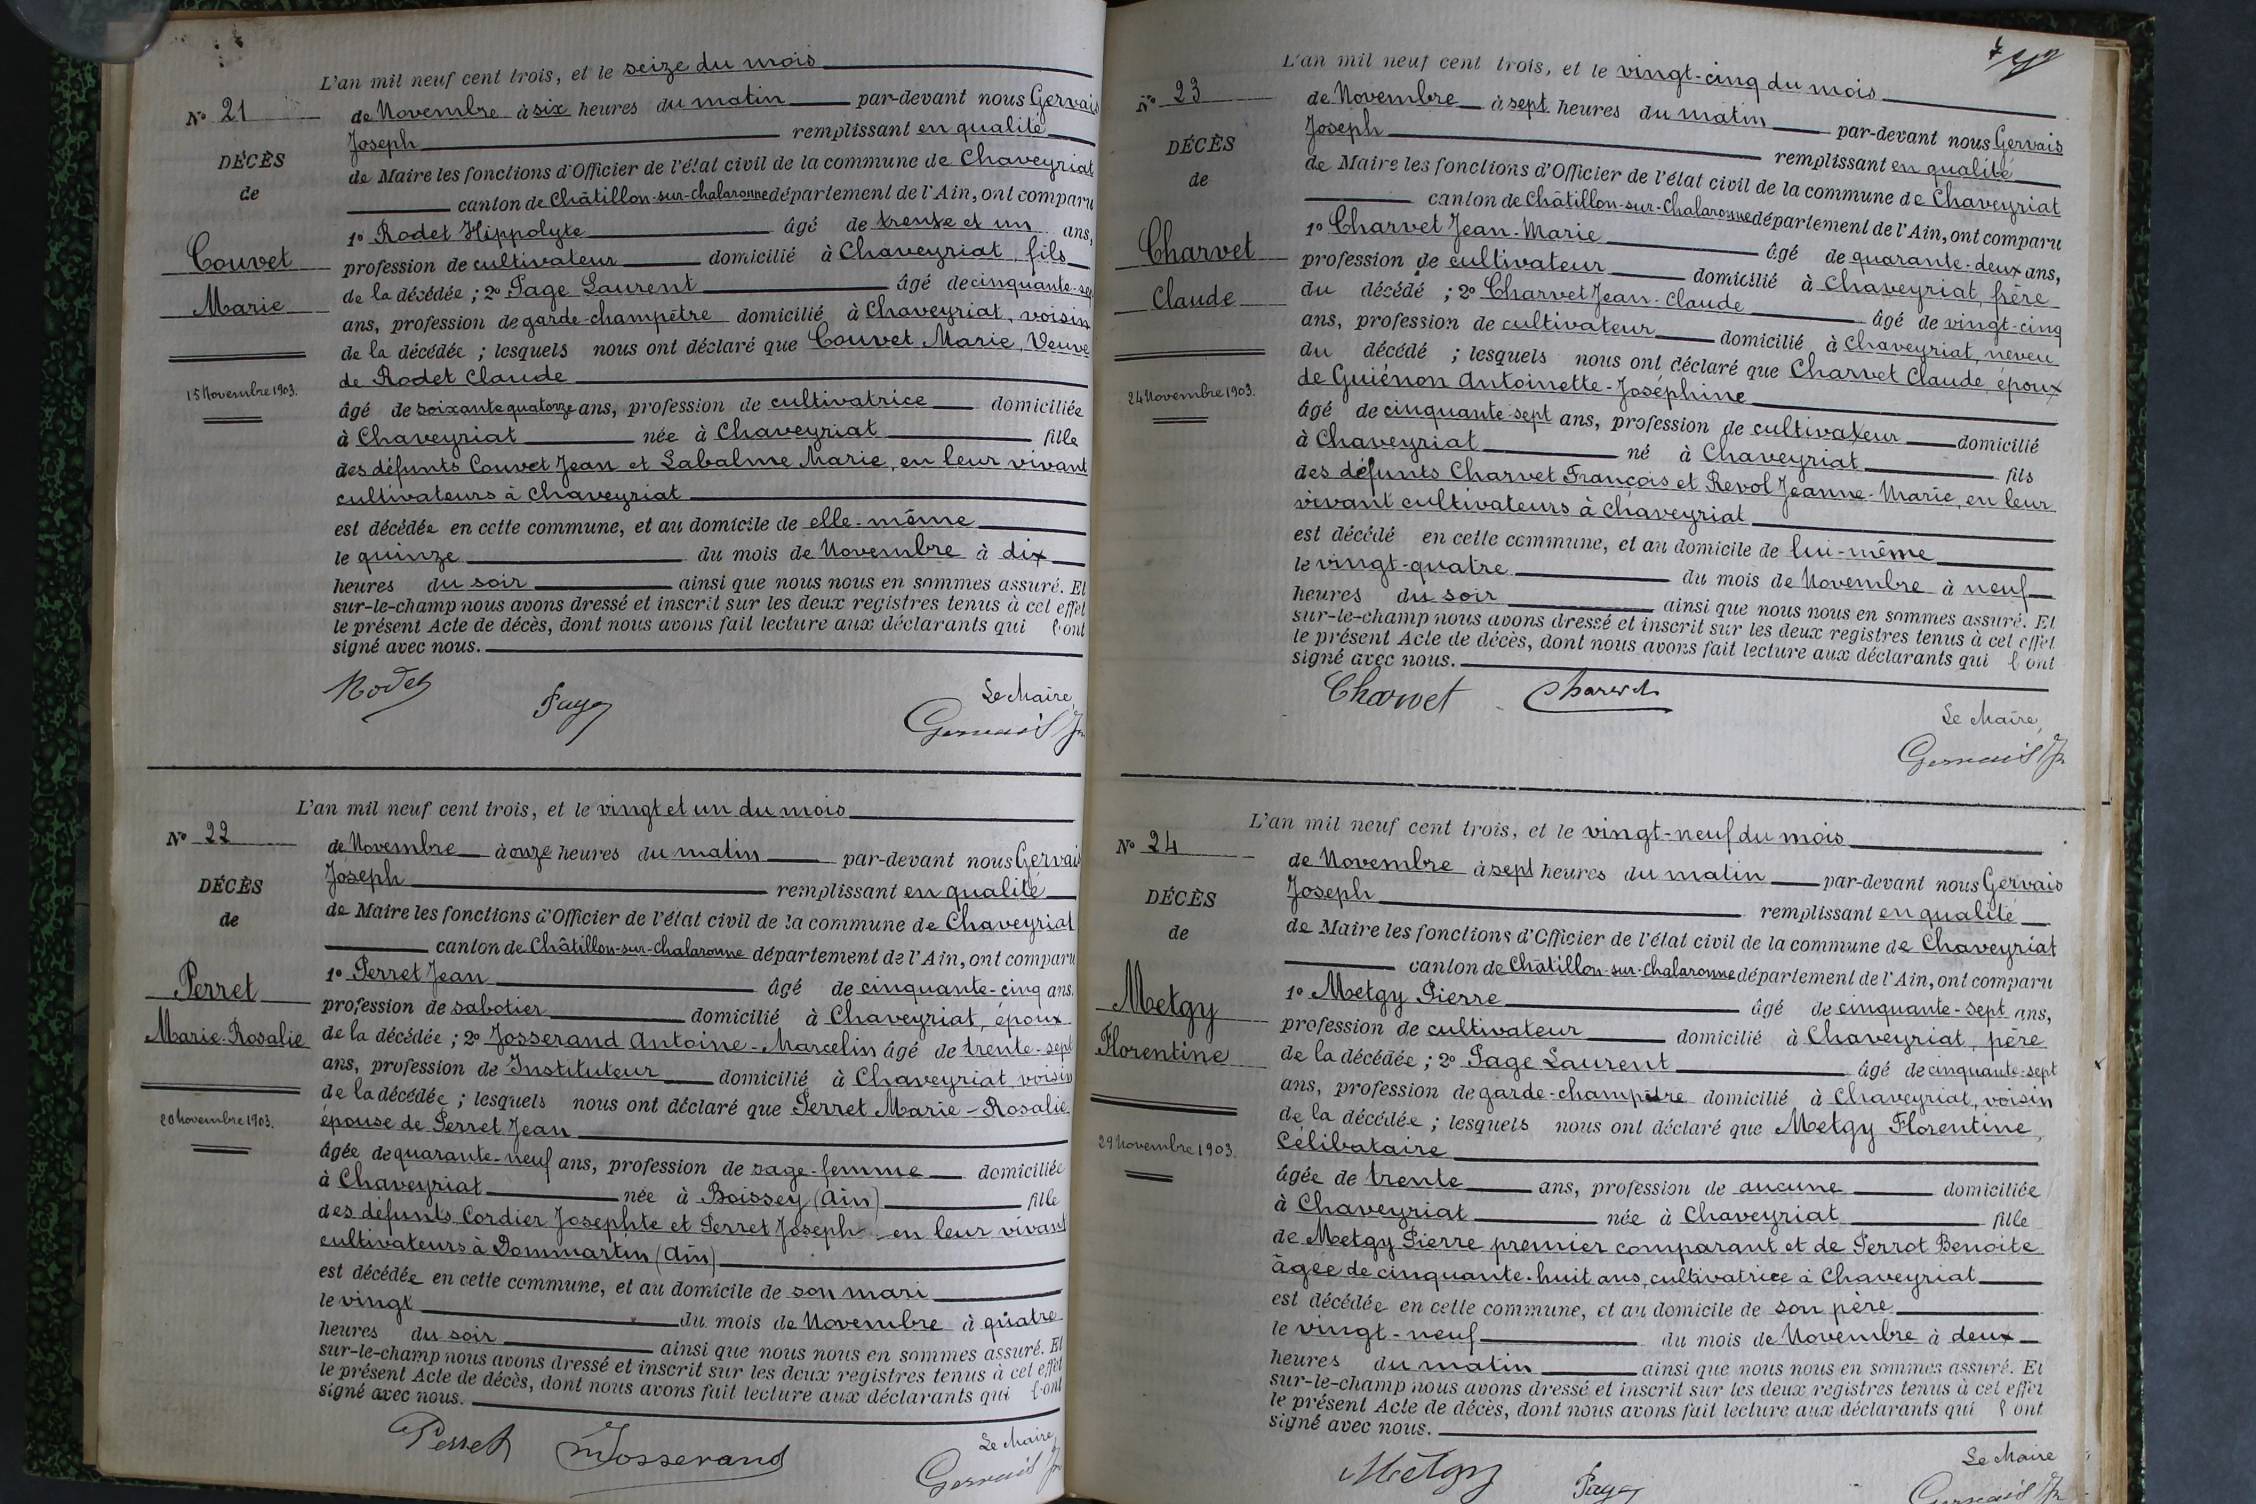 L'an mil neuf cent trois, et le seize du mois
N° 21
de Novembre à six heures du matin par-devant nous Gervais
Joseph remplissant en qualité
DÉCÈS
de Maire les fonctions d'Officier de l'état civil de la commune de Chaveyriat
de
canton de Châtillon-sur-Chalaronne département de l'Ain, ont comparu
1° Rodet Hippolyte âgé de trente et un ans,
Couvet
profession de cultivateur domicilié à Chaveyriat, fils
Marie
de la décédée ; 2° Page Laurent âgé de cinquante-sep
ans, profession de garde-champêtre domicilié à Chaveyriat, voisin
de la décédée ; lesquels nous ont déclaré que Couvet Marie, Veuve
de Rodet Claude
15 Novembre 1903.
âgé de soixante quatorze ans, profession de cultivatrice domiciliée
à Chaveyriat née à Chaveyriat fille
des défunts Couvet Jean et Labalme Marie, en leur vivant
cultivateurs à Chaveyriat
est décédée en cette commune, et au domicile de elle-même
le quinze du mois de Novembre à dix
heures du soir ainsi que nous nous en sommes assuré. Et
sur-le-champ nous avons dressé et inscrit sur les deux registres tenus à cet effet
le présent Acte de décès, dont nous avons fait lecture aux déclarants qui l'ont
signé avec nous.
Rodet Page Le Maire,
Gervais Jh
L'an mil neuf cent trois, et le vingt et un du mois
N° 22
de Novembre à onze heures du matin par-devant nous Gervais
Joseph remplissant en qualité
DÉCÈS
de Maire les fonctions d'Officier de l'état civil de la commune de Chaveyriat
de
canton de Châtillon-sur-Chalaronne département de l'Ain, ont comparu
1° Perret Jean âgé de cinquante-cinq ans,
Perret
profession de sabotier domicilié à Chaveyriat, époux
Marie-Rosalie
de la décédée ; 2° Josserand Antoine-Marcelin âgé de trente-sept
ans, profession de Instituteur domicilié à Chaveyriat voisin
de la décédée ; lesquels nous ont déclaré que Perret Marie-Rosalie
20 Novembre 1903.
épouse de Perret Jean
âgée de quarante-neuf ans, profession de sage-femme domiciliée
à Chaveyriat née à Boissey (Ain) fille
des défunts Cordier Josephte et Perret Joseph en leur vivant
cultivateurs à Dommartin (Ain)
est décédée en cette commune, et au domicile de son mari
le vingt du mois de Novembre à quatre
heures du soir ainsi que nous nous en sommes assuré. Et
sur-le-champ nous avons dressé et inscrit sur les deux registres tenus à cet effet
le présent Acte de décès, dont nous avons fait lecture aux déclarants qui l'ont
signé avec nous.
Perret Josserand Le Maire,
Gervais Jh
L'an mil neuf cent trois, et le vingt-cinq du mois
N° 23
de Novembre à sept heures du matin par-devant nous Gervais
Joseph remplissant en qualité
DÉCÈS
de Maire les fonctions d'Officier de l'état civil de la commune de Chaveyriat
de
canton de Châtillon-sur-Chalaronne département de l'Ain, ont comparu
1° Charvet Jean-Marie âgé de quarante-deux ans,
Charvet
profession de cultivateur domicilié à Chaveyriat, frère
Claude
du décédé ; 2° Charvet Jean-Claude âgé de vingt-cinq
ans, profession de cultivateur domicilié à Chaveyriat, neveu
du décédé ; lesquels nous ont déclaré que Charvet Claude, époux
24 Novembre 1903.
de Guiénon Antoinette-Joséphine
âgé de cinquante-sept ans, profession de cultivateur domicilié
à Chaveyriat né à Chaveyriat fils
des défunts Charvet François et Revol Jeanne-Marie, en leur
vivant cultivateurs à Chaveyriat
est décédé en cette commune, et au domicile de lui-même
le vingt-quatre du mois de Novembre à neuf
heures du soir ainsi que nous nous en sommes assuré. Et
sur-le-champ nous avons dressé et inscrit sur les deux registres tenus à cet effet
le présent Acte de décès, dont nous avons fait lecture aux déclarants qui l'ont
signé avec nous.
Charvet Charvet
Le Maire,
Gervais Jh
L'an mil neuf cent trois, et le vingt-neuf du mois
N° 24
de Novembre à sept heures du matin par-devant nous Gervais
Joseph remplissant en qualité
DÉCÈS
de Maire les fonctions d'Officier de l'état civil de la commune de Chaveyriat
de
canton de Châtillon-sur-Chalaronne département de l'Ain, ont comparu
1° Metgy Pierre âgé de cinquante-sept ans,
Metgy
profession de cultivateur domicilié à Chaveyriat, père
Florentine
de la décédée ; 2° Page Laurent âgé de cinquante-sept
ans, profession de garde-champêtre domicilié à Chaveyriat, voisin
de la décédée ; lesquels nous ont déclaré que Metgy Florentine,
29 Novembre 1903.
Célibataire
âgée de trente ans, profession de aucune domiciliée
à Chaveyriat née à Chaveyriat fille
de Metgy Pierre premier comparant et de Perrot Benoite
âgée de cinquante-huit ans, cultivatrice à Chaveyriat
est décédée en cette commune, et au domicile de son père
le vingt-neuf du mois de Novembre à deux
heures du matin ainsi que nous nous en sommes assuré. Et
sur-le-champ nous avons dressé et inscrit sur les deux registres tenus à cet effet
le présent Acte de décès, dont nous avons fait lecture aux déclarants qui l'ont
signé avec nous.
Metgy Page Le Maire
Gervais Jh